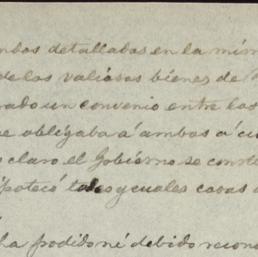 detalladas en la mism
de las valiosas bienes de
rado un convenio entre las
e obligaba á ambas á cu
claro el Gobierno se const
ipotecó tales y cuales casas
ha podido né debido recono